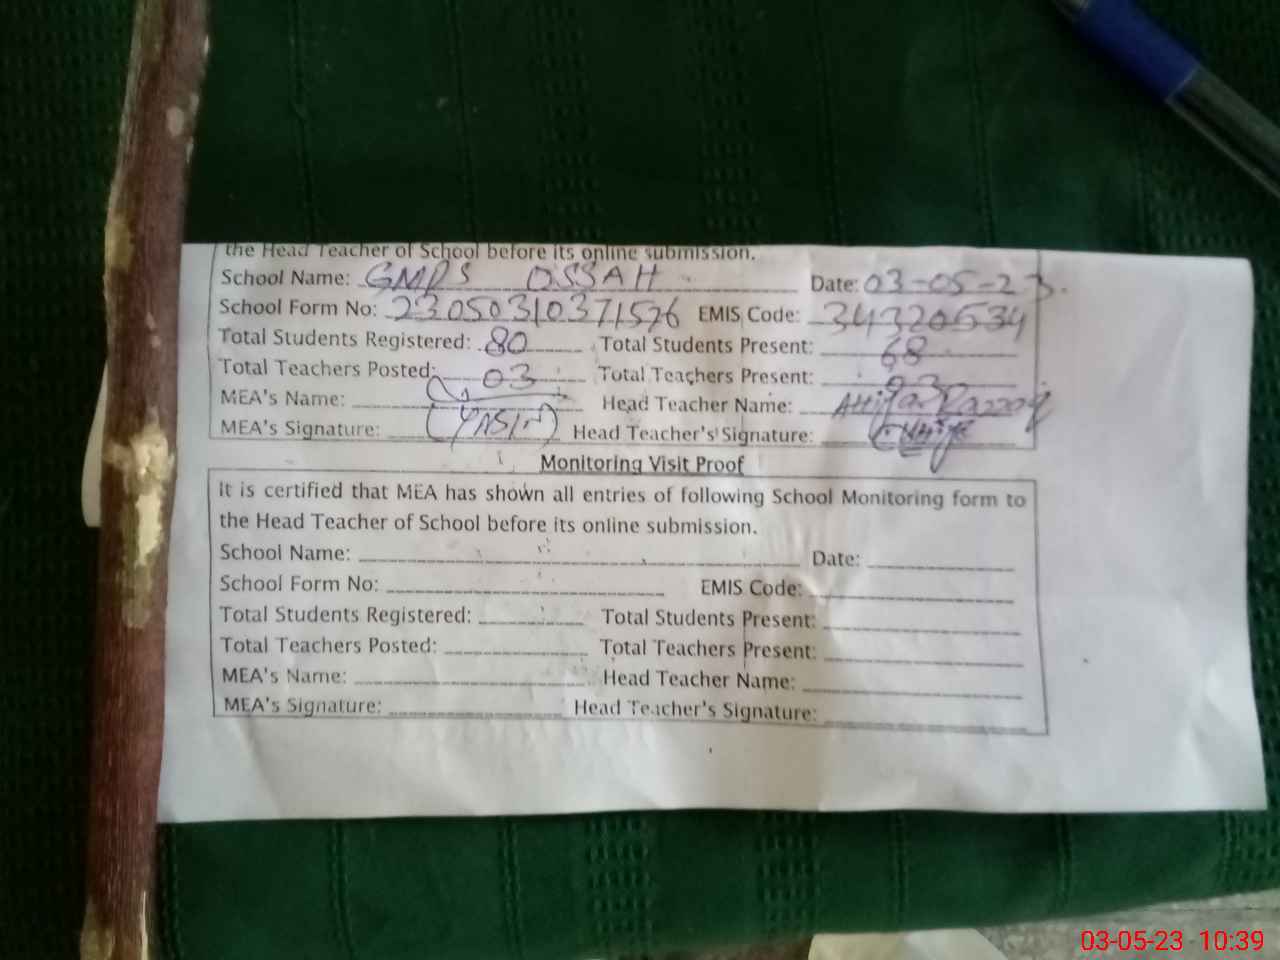 the Head Teacher of School before its online submission.
School Name: GMPS OSSAH Date: 03-05-23.
School Form No: 23050310371576 EMIS Code: 34320534
Total Students Registered: 80 Total Students Present: 68
Total Teachers Posted: 03 Total Teachers Present: 03
MEA's Name: Head Teacher Name: Attiqa Razzaq
MEA's Signature: (YASIN) Head Teacher's Signature:
Monitoring Visit Proof
It is certified that MEA has shown all entries of following School Monitoring form to
the Head Teacher of School before its online submission.
School Name: Date:
School Form No: EMIS Code:
Total Students Registered: Total Students Present:
Total Teachers Posted: Total Teachers Present:
MEA's Name: Head Teacher Name:
MEA's Signature: Head Teacher's Signature:
03-05-23 10:39